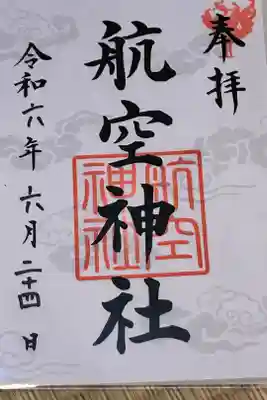 奉拝
航空神社
航空
神社
令和六年 六月 二十四 日